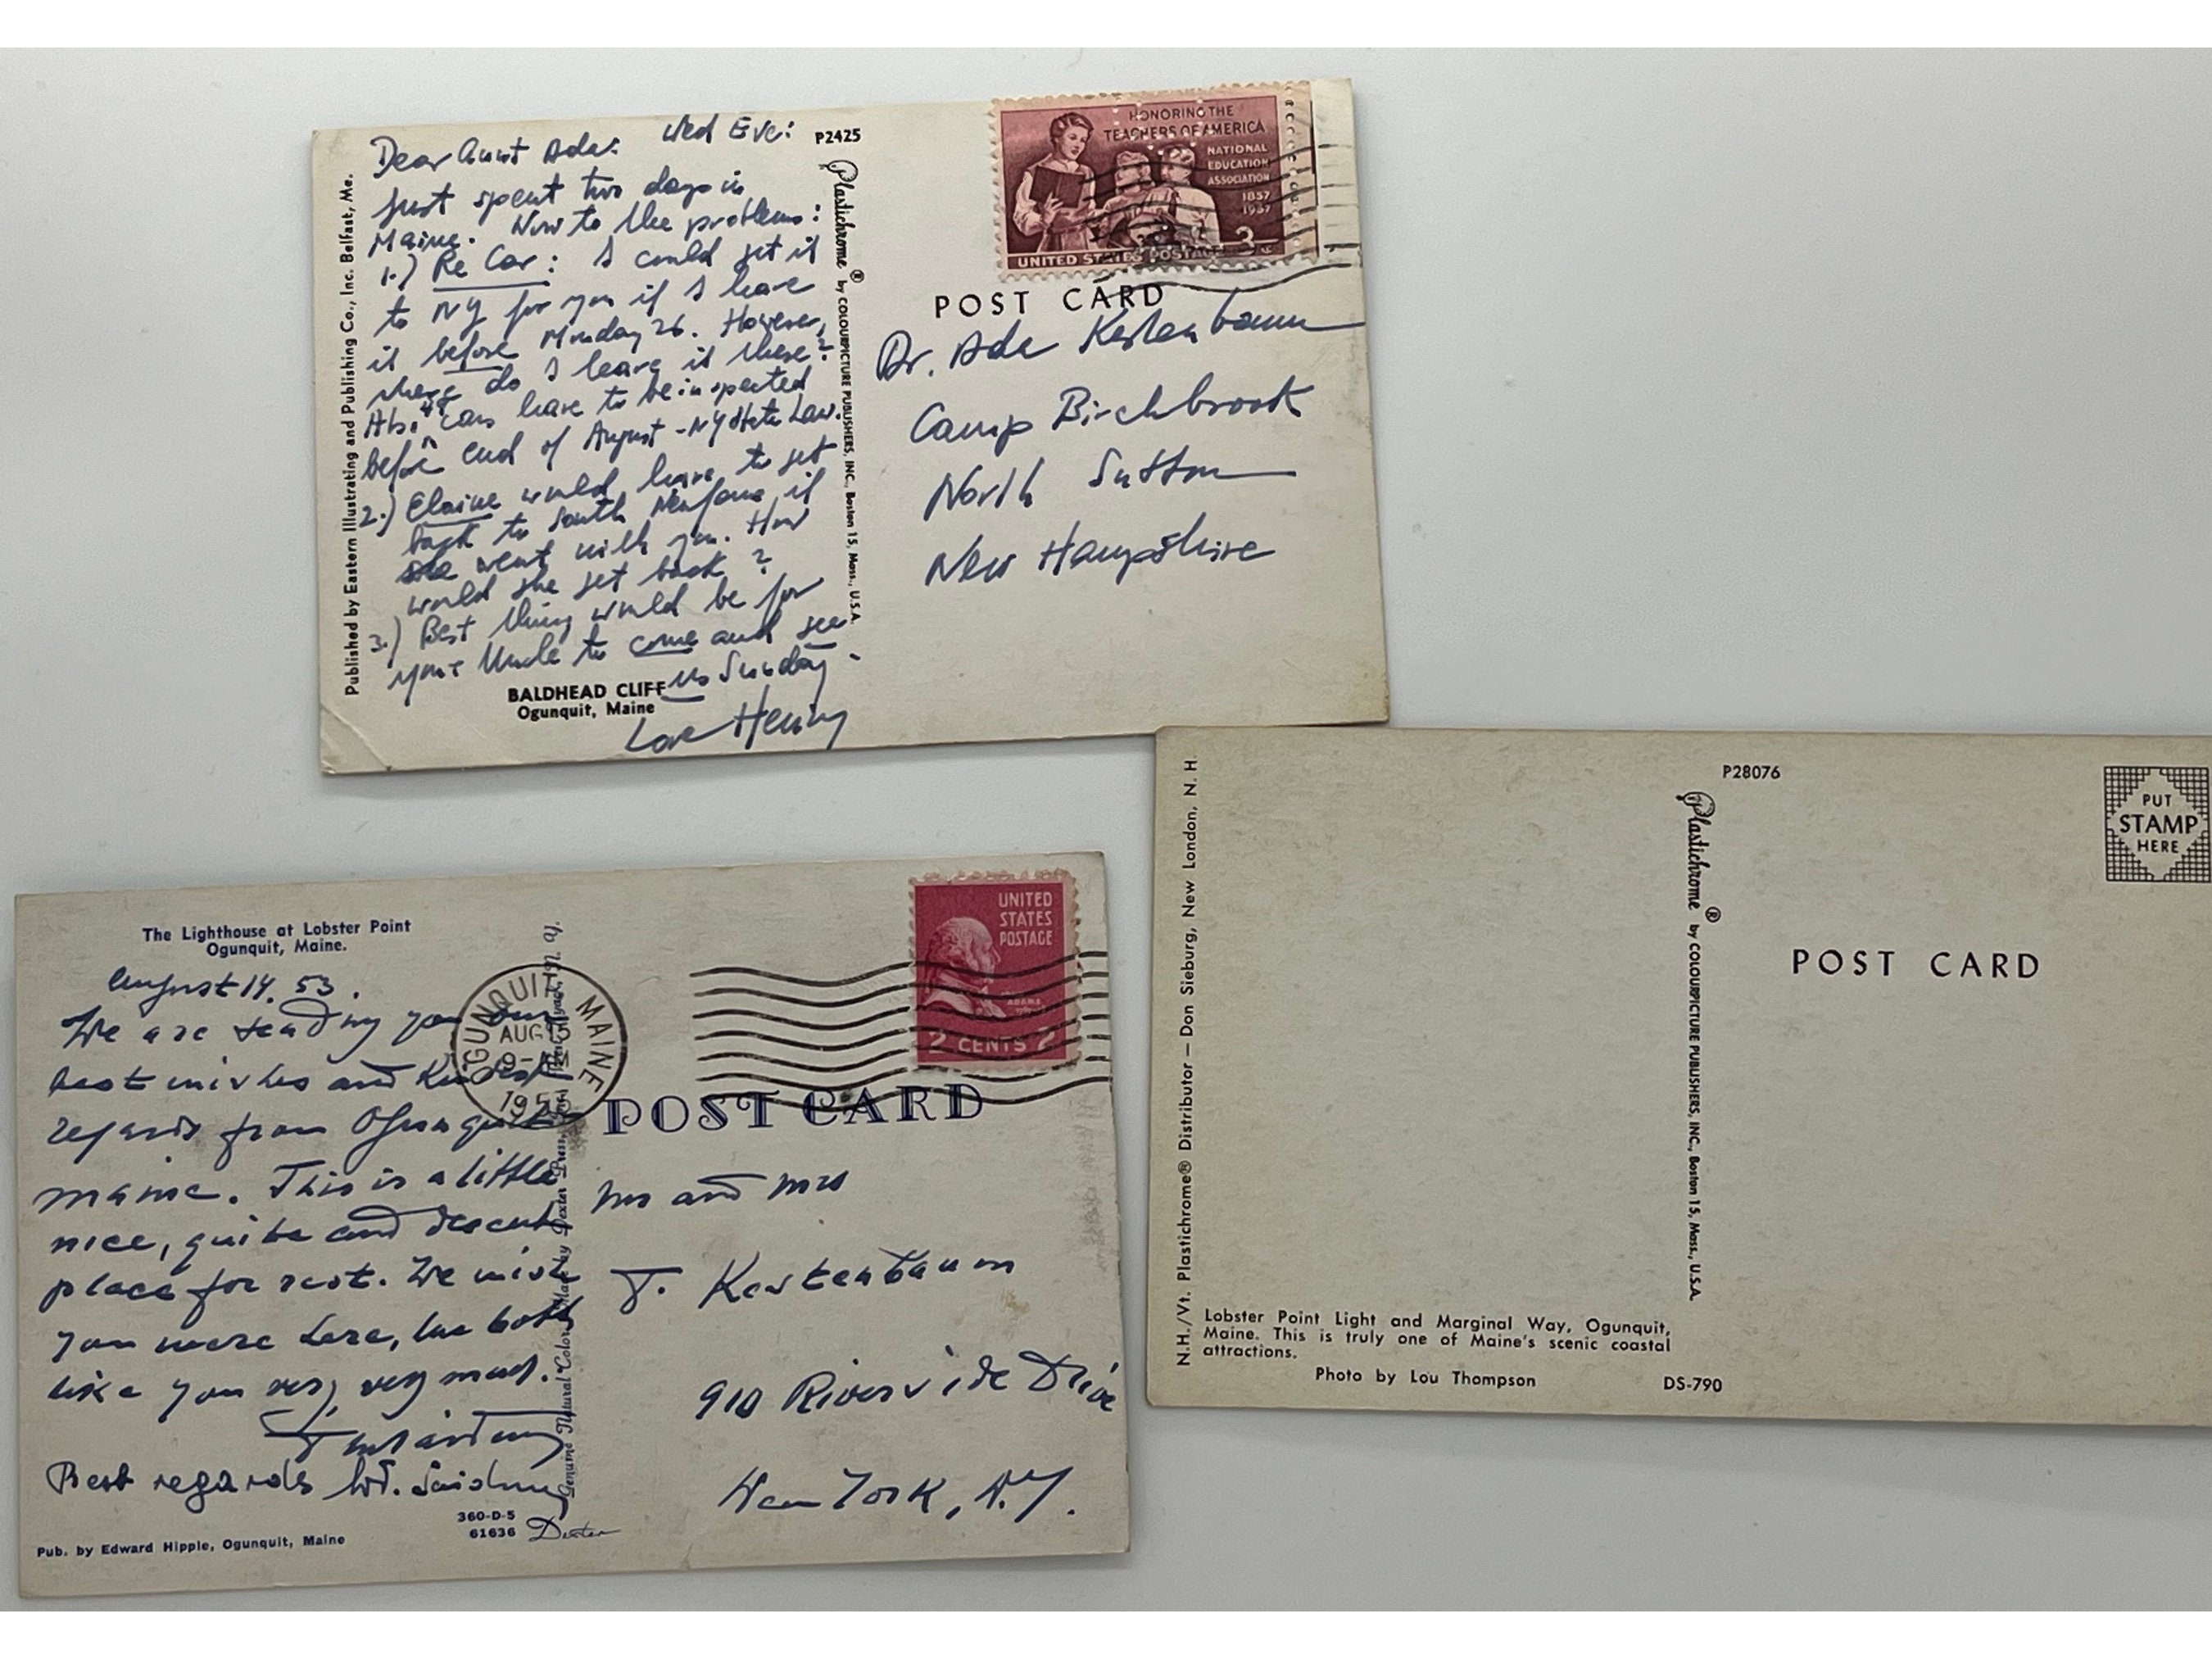 Dear Aunt Ada: Wed Eve:
Just spent two days in
Maine. Now to the problems:
1.) Re Car: I could get it
to NY for you if I have
it before Monday 26. However,
where do I leave it there?
Also, cars have to be inspected
before end of August - NY State Law.
2.) Elaine would have to get
back to South Newfane, if
she went with you. How
would she get back?
3.) Best thing would be for
you + Uncle to come and see
us Sunday -
Love Henry
BALDHEAD CLIFF
Ogunquit, Maine
Published by Eastern Illustrating and Publishing Co., Inc. Belfast, Me.
P2425
Plastichrome ® by COLOURPICTURE PUBLISHERS, INC., Boston 15, Mass., U.S.A.
HONORING THE
TEACHERS OF AMERICA
NATIONAL
EDUCATION
ASSOCIATION
1857
1957
3¢
UNITED STATES POSTAGE
POST CARD
Dr. Ada Kestenbaum
Camp Birchbrook
North Sutton
New Hampshire
N.H./Vt. Plastichrome® Distributor — Don Sieburg, New London, N. H.
P28076
Plastichrome ® by COLOURPICTURE PUBLISHERS, INC., Boston 15, Mass., U.S.A.
PUT
STAMP
HERE
POST CARD
Lobster Point Light and Marginal Way, Ogunquit,
Maine. This is truly one of Maine's scenic coastal
attractions.
Photo by Lou Thompson
DS-790
The Lighthouse at Lobster Point
Ogunquit, Maine.
August 14. 53.
We are sending you our
best wishes and kindest
regards from Ogunquit
Maine. This is a little
nice, quite and descent
place for rest. We wish
you were here, we both
like you very, very much.
Best regards W.
360-D-5
61636
Dexter
Pub. by Edward Hipple, Ogunquit, Maine
Genuine Natural Color Made by Dexter Press, N. Y.
OGUNQUIT MAINE
AUG
9- AM
195
UNITED
STATES
POSTAGE
ADAMS
2 CENTS 2
POST CARD
Mr and Mrs
J. Kestenbaum
910 Riverside Drive
New York, N.Y.